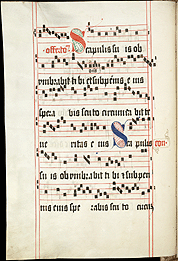 offerto Scapulis su is ob
umbrabit ti bi et sub pennis e ius
spera bis scu to circumda bit te
ne ritas e ius Sca pulis
su is ob umbrabit ti bi et sub pen
nis eius spe rabis scu to